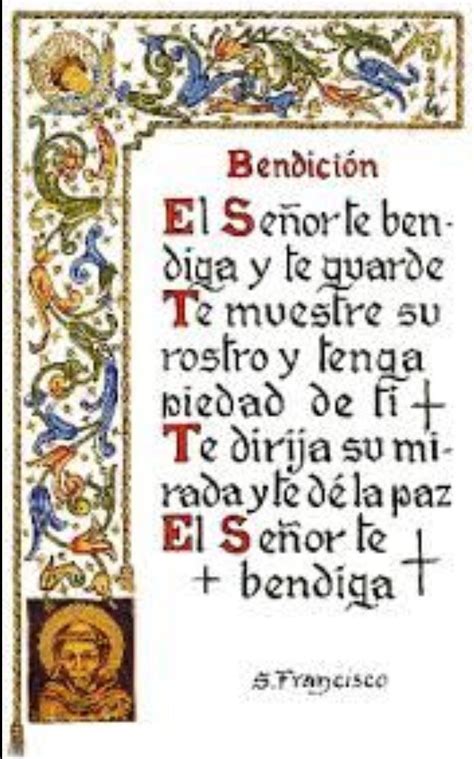 Bendición
El Señor te ben-
diga y te guarde
Te muestre su
rostro y tenga
piedad de ti
Te dirija su mi-
rada y te dé la paz
El Señor te
bendiga
S. Francisco